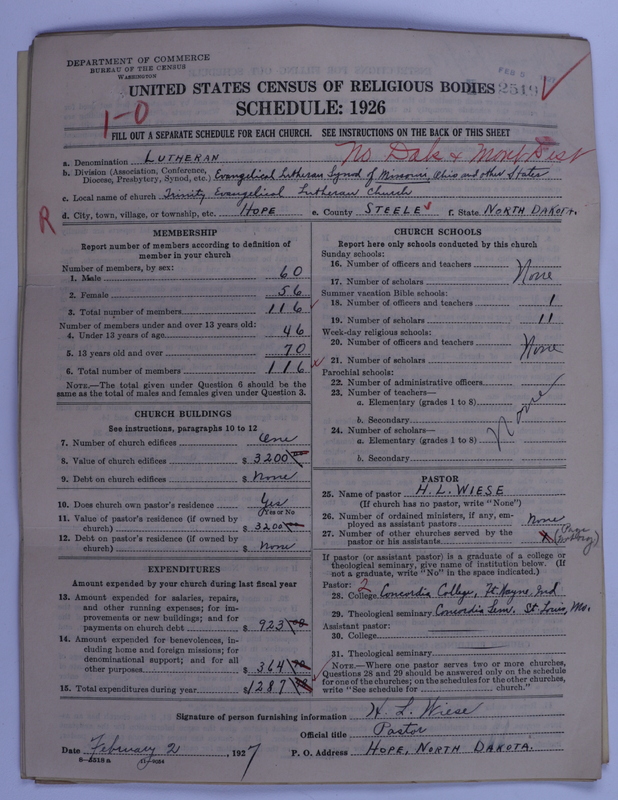 DEPARTMENT OF COMMERCE
BUREAU OF THE CENSUS
WASHINGTON
FEB 5
2519
UNITED STATES CENSUS OF RELIGIOUS BODIES
SCHEDULE: 1926
1-0
FILL OUT A SEPARATE SCHEDULE FOR EACH CHURCH. SEE INSTRUCTIONS ON THE BACK OF THIS SHEET
No Dak & Mont Dist
a. Denomination LUTHERAN
b. Division (Association, Conference, Diocese, Presbytery, Synod, etc.) Evangelical Lutheran Synod of Missouri, Ohio and other States
c. Local name of church Trinity Evangelical Lutheran Church
R
d. City, town, village, or township, etc. HOPE e. County STEELE f. State NORTH DAKOTA.
MEMBERSHIP
Report number of members according to definition of
member in your church
Number of members, by sex:
1. Male 60
2. Female 56
3. Total number of members 116
Number of members under and over 13 years old:
4. Under 13 years of age 46
5. 13 years old and over 70
6. Total number of members 116
NOTE.—The total given under Question 6 should be the
same as the total of males and females given under Question 3.
CHURCH BUILDINGS
See instructions, paragraphs 10 to 12
7. Number of church edifices One
8. Value of church edifices $ 3200
9. Debt on church edifices $ None
10. Does church own pastor's residence Yes
Yes or No
11. Value of pastor's residence (if owned by
church) $ 3200
12. Debt on pastor's residence (if owned by
church) $ None
EXPENDITURES
Amount expended by your church during last fiscal year
13. Amount expended for salaries, repairs,
and other running expenses; for im-
provements or new buildings; and for
payments on church debt $ 923
14. Amount expended for benevolences, in-
cluding home and foreign missions; for
denominational support; and for all
other purposes $ 364
15. Total expenditures during year $ 1287
CHURCH SCHOOLS
Report here only schools conducted by this church
Sunday schools:
16. Number of officers and teachers
None
17. Number of scholars
Summer vacation Bible schools:
18. Number of officers and teachers 1
19. Number of scholars 11
Week-day religious schools:
20. Number of officers and teachers
None
21. Number of scholars
Parochial schools:
22. Number of administrative officers
23. Number of teachers—
a. Elementary (grades 1 to 8)
None
b. Secondary
24. Number of scholars—
a. Elementary (grades 1 to 8)
b. Secondary
PASTOR
25. Name of pastor H. L. WIESE
(If church has no pastor, write "None")
26. Number of ordained ministers, if any, em-
ployed as assistant pastors None
27. Number of other churches served by the
pastor or his assistants
If pastor (or assistant pastor) is a graduate of a college or
theological seminary, give name of institution below. (If
not a graduate, write "No" in the space indicated.)
Pastor: 2
28. College Concordia College, Ft. Wayne, Ind
29. Theological seminary Concordia Sem. St. Louis, Mo.
Assistant pastor:
30. College
31. Theological seminary
NOTE.—Where one pastor serves two or more churches,
Questions 28 and 29 should be answered only on the schedule
for one of the churches; on the schedules for the other churches,
write "See schedule for church."
Signature of person furnishing information H. L. Wiese
Official title Pastor
Date February 2, 1927 P. O. Address HOPE, NORTH DAKOTA.
8-5518 a